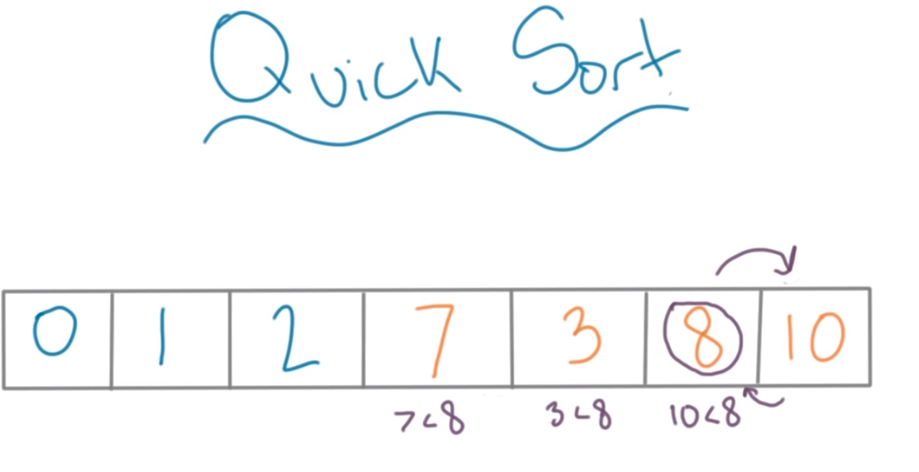 Quick Sort
0 1 2 7 3 8 10
7<8 3<8 10<8